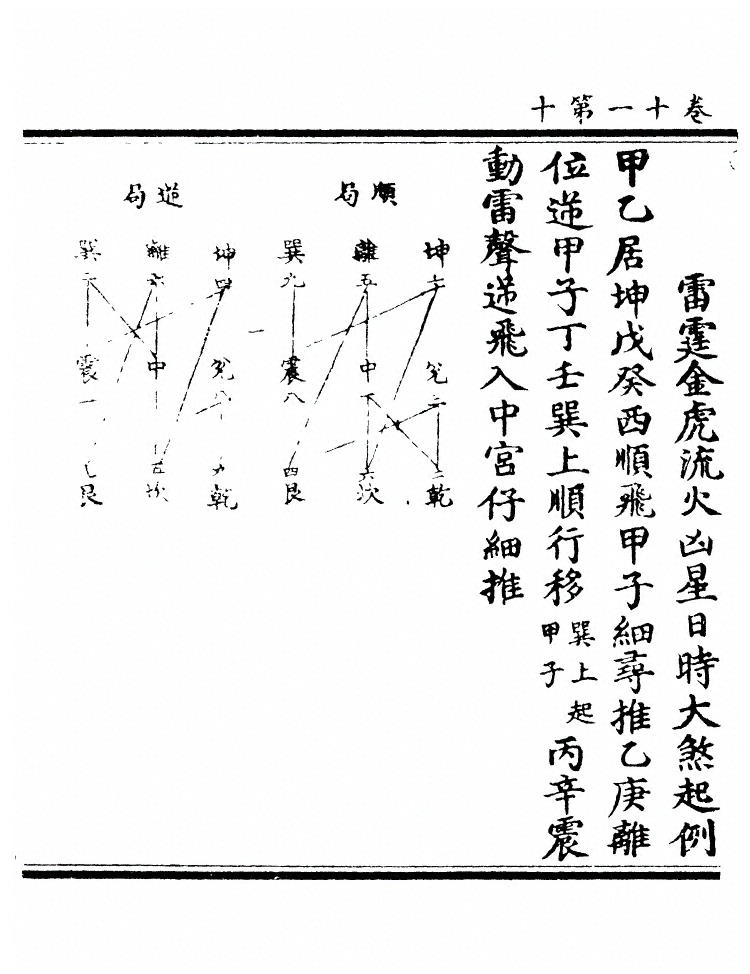 卷十一第十
雷霆金虎流火凶星日時大煞起例
甲乙居坤戊癸西順飛甲子細尋推乙庚離
位逆甲子丁壬巽上順行移巽上起甲子丙辛震
動雷聲逆飛入中宮仔細推
順局
坤 離五 巽九
兌 中 震八
乾 六坎 四艮
逆局
坤四 離六 巽
兌八 中 震一
九乾 五坎 艮